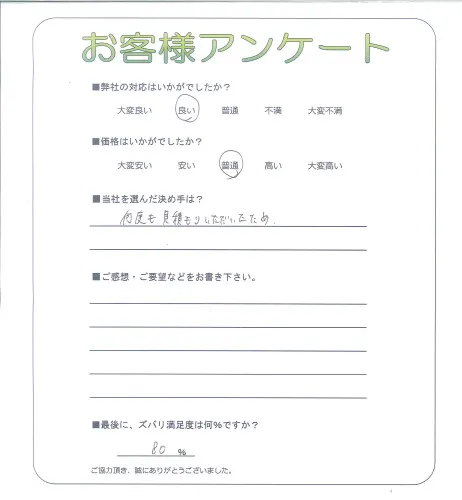 お客様アンケート
■弊社の対応はいかがでしたか？
大変良い 良い 普通 不満 大変不満
■価格はいかがでしたか？
大変安い 安い 普通 高い 大変高い
■当社を選んだ決め手は？
何度も見積もりいただいたため.
■ご感想・ご要望などをお書き下さい。
■最後に、ズバリ満足度は何%ですか？
80 %
ご協力頂き、誠にありがとうございました。